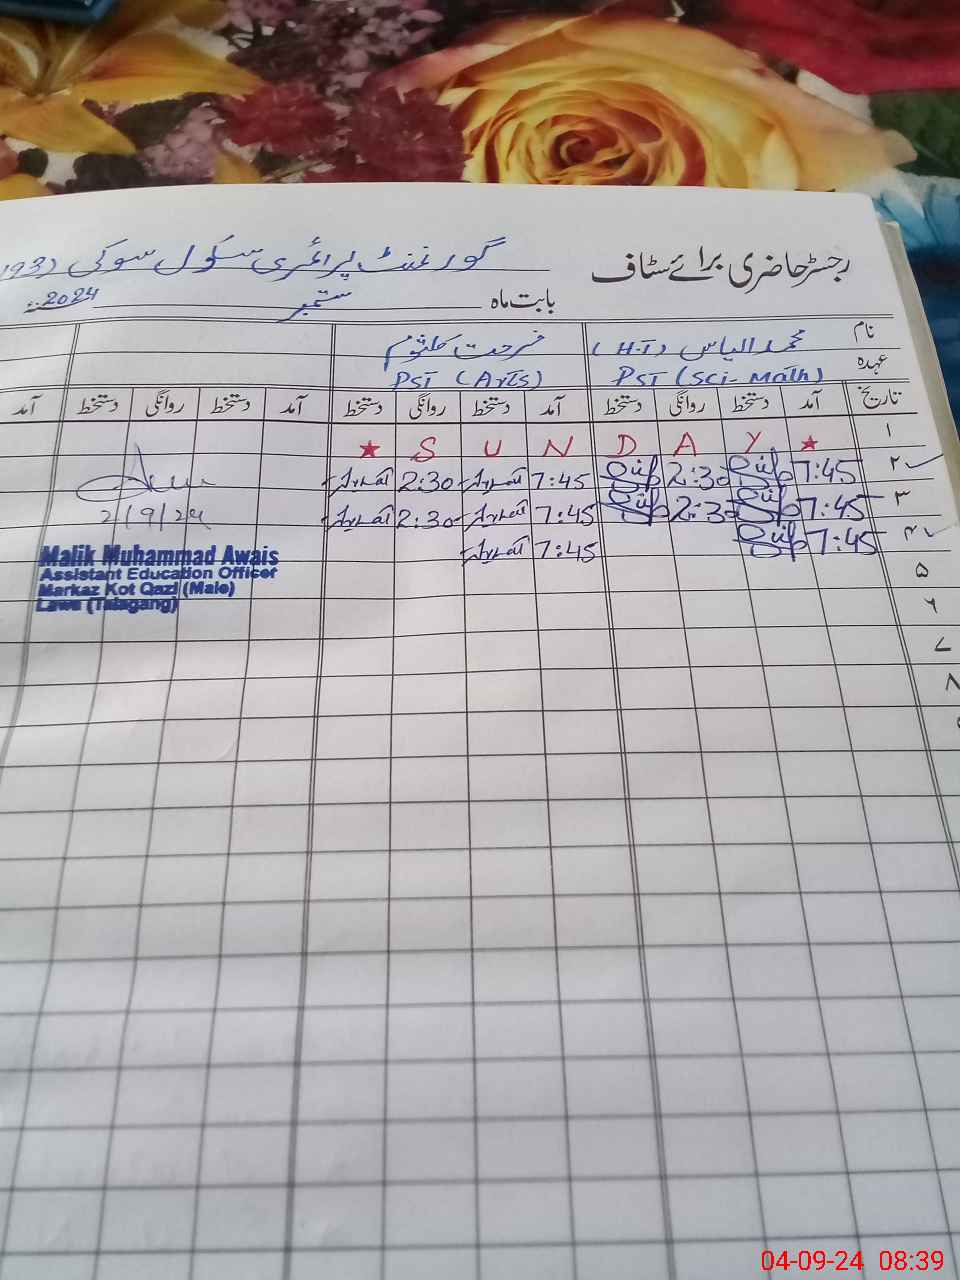 رجسٹر حاضری برائے سٹاف گورنمنٹ پرائمری سکول سوکی (193
بابت ماہ ستمبر 2024ء
نام محمد الیاس (H.T) فرحت کلثوم
عہدہ PST (Sci-Math) PST (Arts)
تاریخ آمد دستخط روانگی دستخط آمد دستخط روانگی دستخط آمد دستخط روانگی دستخط آمد
۱ ★ S U N D A Y ★
۲ 7:45 2:30 7:45 2:30
۳ 7:45 2:30 7:45 2:30
۴ 7:45 7:45
۵
۶
۷
۸
2/9/24
Malik Muhammad Awais
Assistant Education Officer
Markaz Kot Qazi (Male)
Lawa (Talagang)
04-09-24 08:39